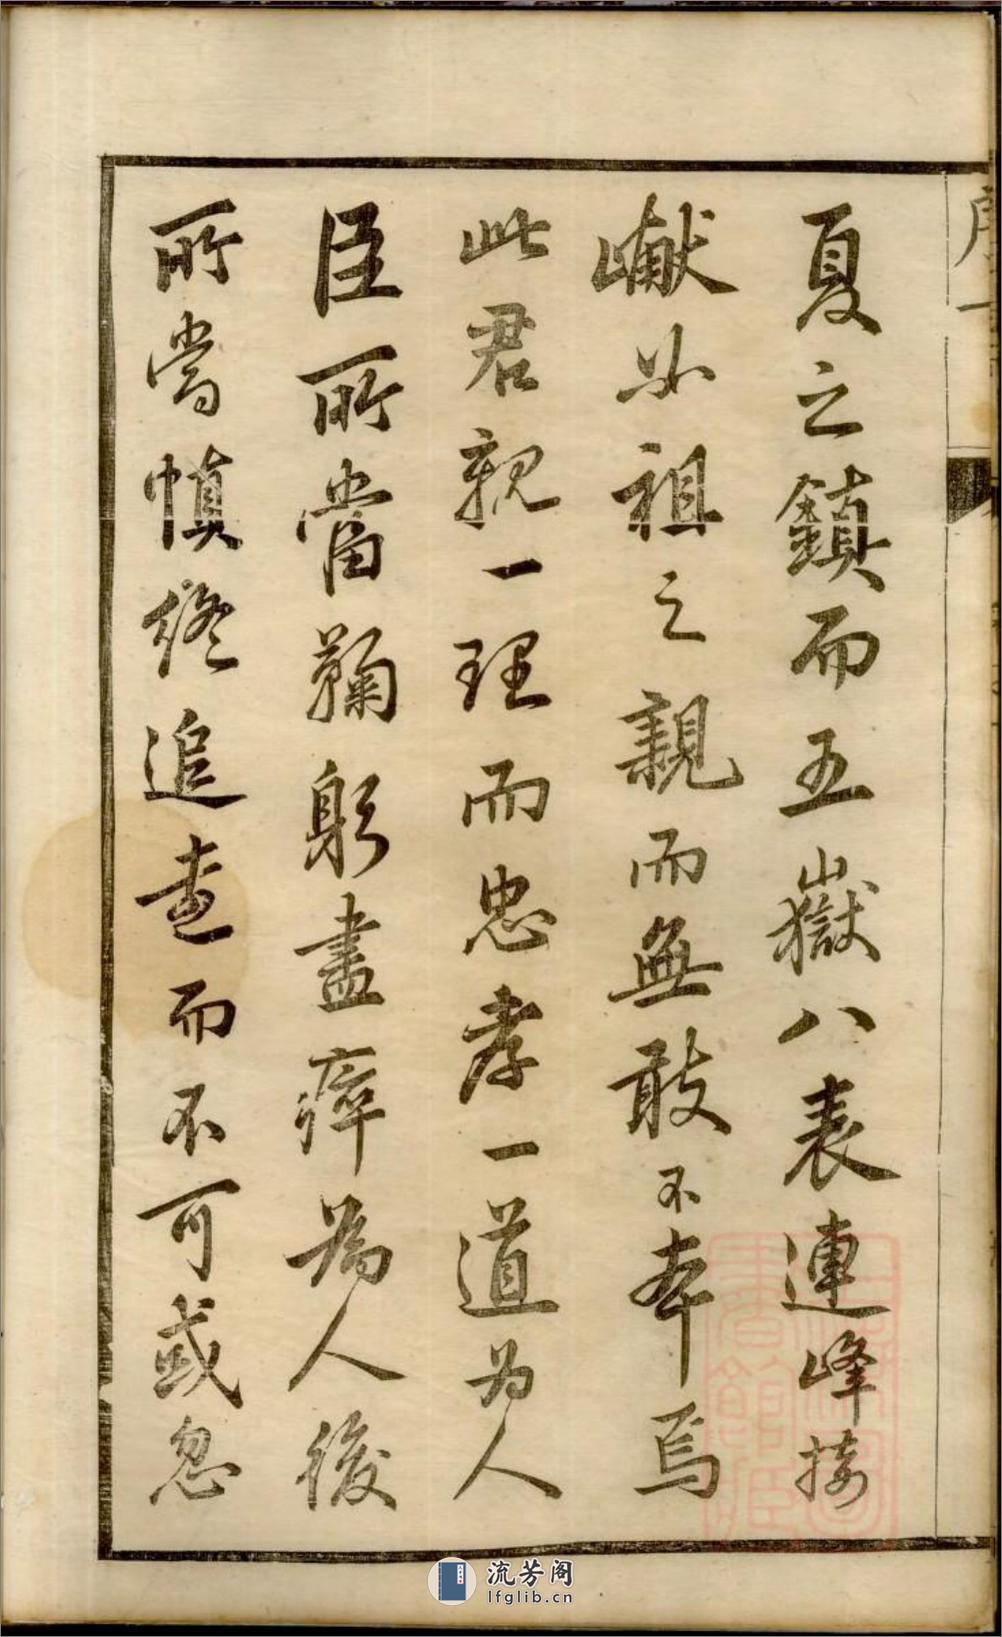 夏之鎮而五嶽八表連峰接
巘必祖之親而無敢不本焉
此君親一理而忠孝一道为人
臣所當鞠躬盡瘁為人後
所當慎終追遠而不可或忽
流芳阁
lfglib.cn